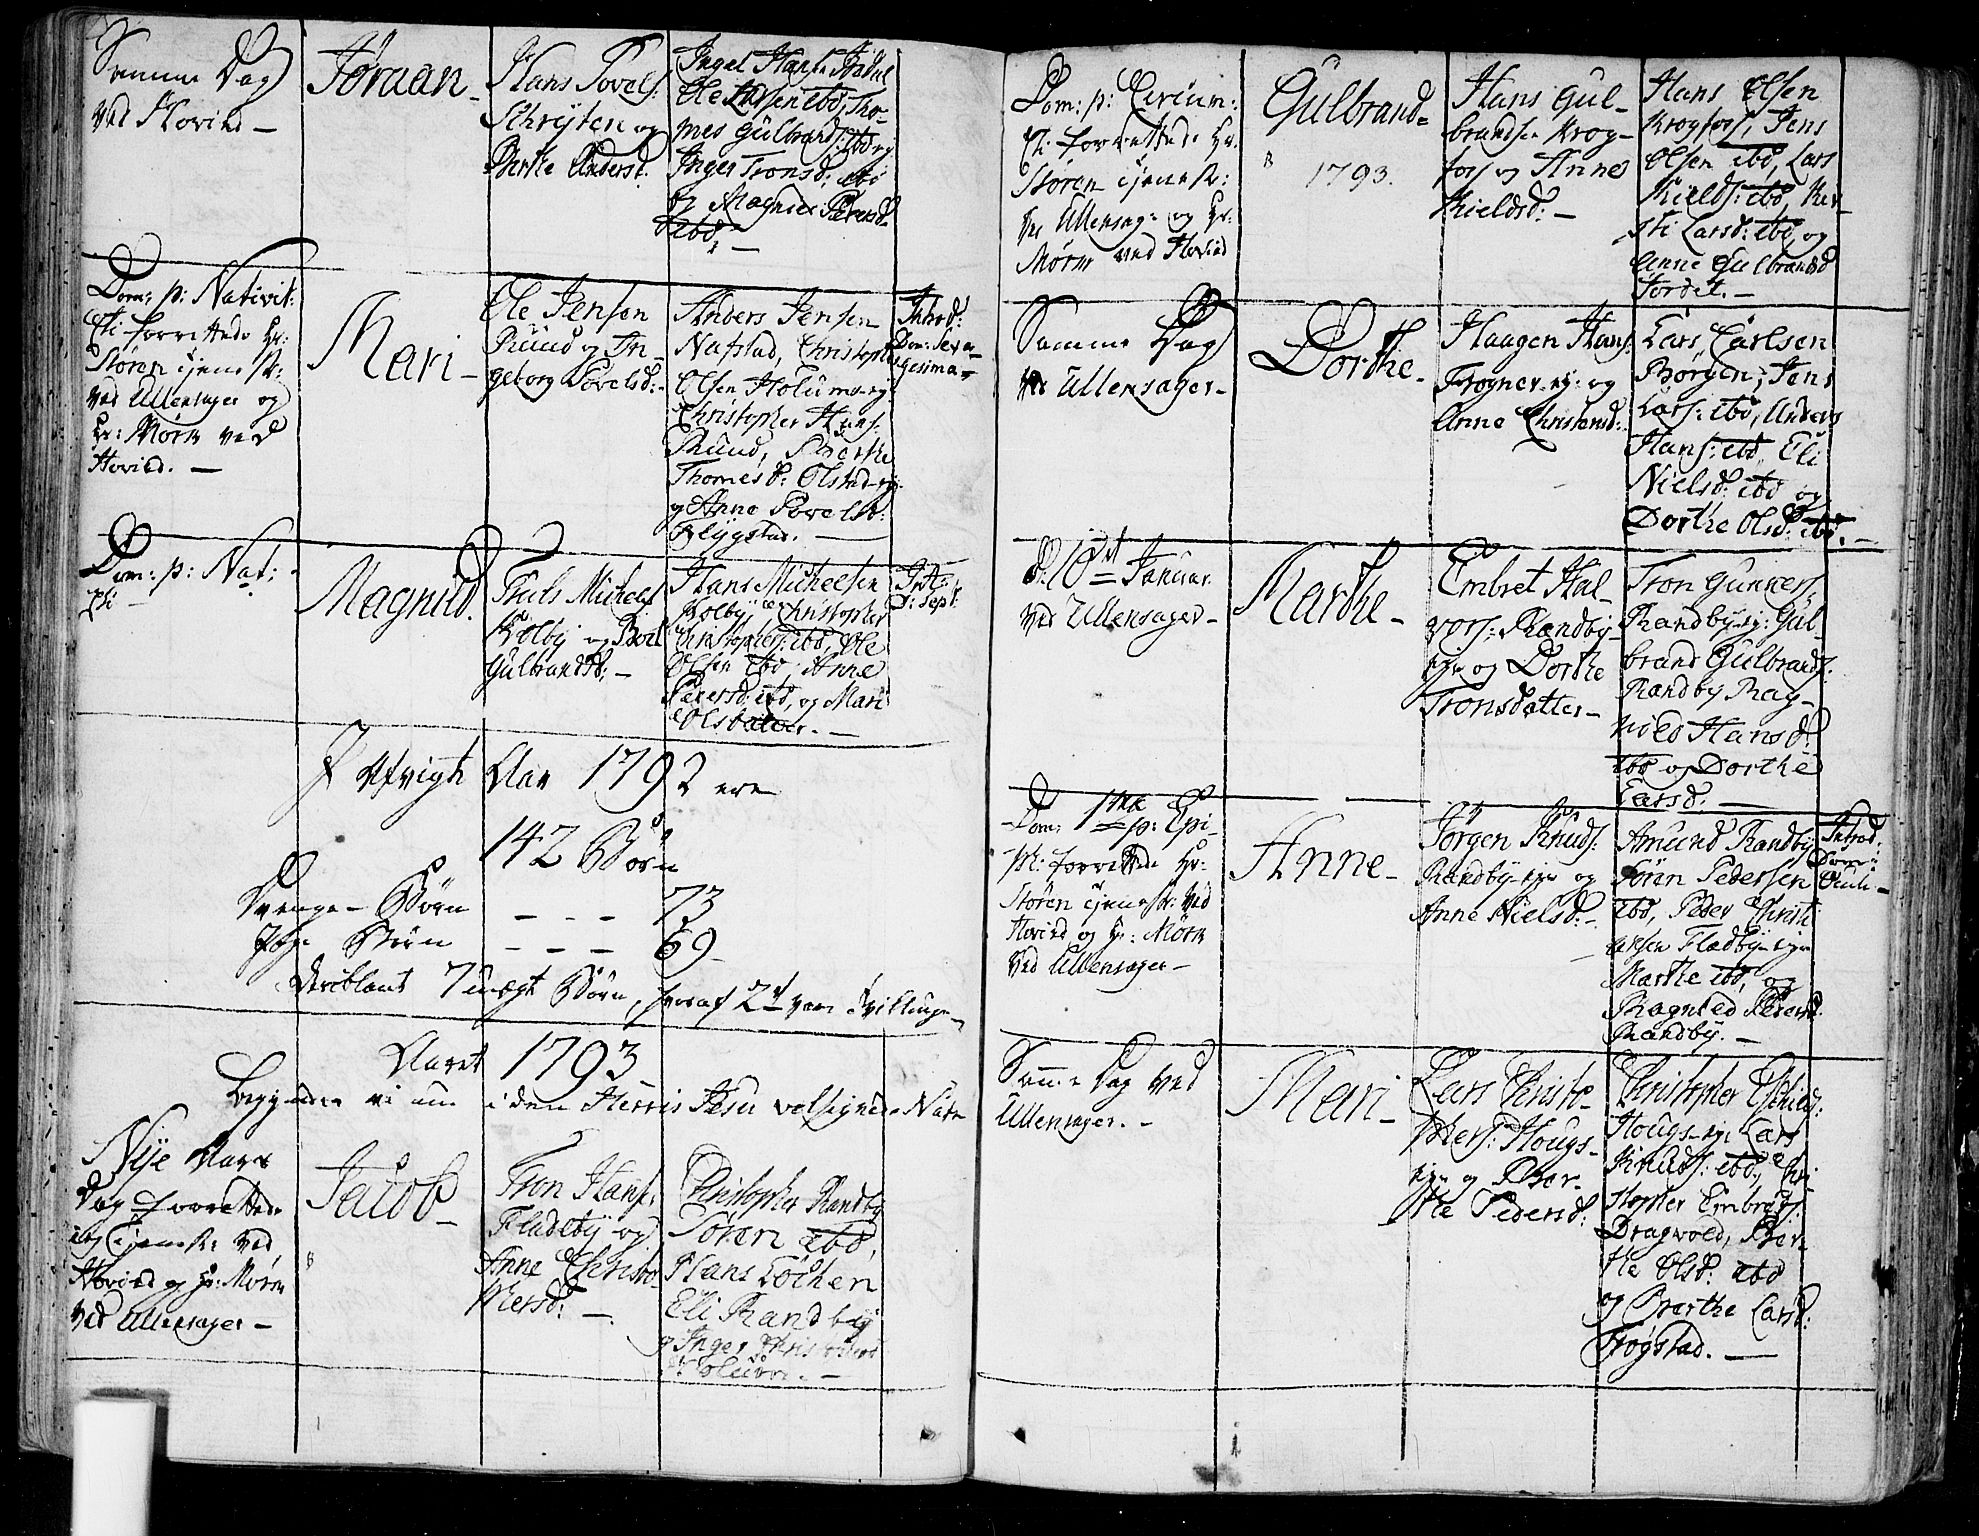 Samme Dag
ved Hovind —
Jøraan
Hans Povels:
Schrýten og
Berthe Anderst:
Ole Larsen ibd, Tho-
mes Gulbrands: ibd og
Inger Tronsd: ibd
og Magnild Pedersd
ibd, —
Dom: p: Nativit:
Xti forrettede Hr:
Støren tjenesten:
ved Ullensager og
Hr: Mørk ved
Hovind. —
Mari —
Ole Jensen
Ruud og In-
geborg Povelsd: -
Anders Jensen
Nafstad, Christopher
Olsen Holums-ej:
Christopher Hans:
Ruud, Berthe
Thomesd: Olstad-ej:
og Anne Povelsd:
Flÿgstad. —
Introd:
Dom: Seva-
gesima -
Dom: p: Nat:
Xti —
Magnild.
Truls Michels:
Kolbÿ og Boel
Gulbrandsd: —
Hans Michelsen
Kolbÿ, Christopher
Christophers: ibd, Ole
Olsen ibd, Anne
Pedersd: ibd, og Mari
Olsdatter. —
Int:
D: Sept:
I Afvigte Aar 1792 ere
142 Børn
Drenge - Børn — - — 73
Pige Børn — — — 69
deriblant 7 uægte Børn, hvoraf 2de vare Tvillinge
Aaret 1793
begynde vi nu i den Herris Jesu velsignede Navn
Nÿe Aars
Dag forrettede
jeg tjenesten ved
Hovind og Hr: Mørk
ved Ullensager —
Jacob —
Tron Hans:
Fladebÿ og
Anne Christo-
phersd: —
Christopher Randbÿ
Søren ibd,
Hans Løchen
Eli Randbÿ
og Inger Christophersd
Holum. —
Dom: p: Circum:
Xti forrettede Hr:
Støren tjenesten:
ved Ullensag: og Hr:
Mørk ved Hovind
Gulbrand -
1793.
Hans Gul-
brands: Krog-
fos og Anne
Kieldsd: —
Hans Olsen
Krogfos, Jens
Olsen ibd, Lars
Kields: ibd, Ker-
sti Larsd: ibd og
Anne Gulbrandsd
Jordet. —
Samme Dag
ved Ullensager —
Dorthe —
Haagen Hans:
Frogner-ej: og
Anne Christensd:
Lars Carlsen
Børgen, Jens
Lars: ibd, Anders
Hans: ibd, Eli
Nielsd: ibd og
Dorthe Olsd: ibd. —
d: 10de Januar
ved Ullensager —
Marthe —
Embret Hal-
vors: Randbÿ-
eje og Dorthe
Tronsdatter —
Tron Gunners:
Randbÿ-ej: Gul-
brand Gulbrands:
Randbÿ Rag-
nild Hansd:
ibd og Dorthe
Larsd: —
Dom: 1ste p: Epi-
ph: forrettede Hr:
Støren tjenesten: ved
Hovind og Hr: Mørk
ved Ullensager —
Anne —
Jørgen Knuds:
Randbÿ-eje og
Anne Nielsd: —
Amund Randbÿ
Søren Pedersen
ibd, Peder Christi
ansen Fladbÿ-eje
Marthe ibd, og
Ragnild Pedersd
Randbÿ. —
Introd:
Dom:
Samme Dag ved
Ullensager. —
Mari —
Lars Christo-
phers: Hougs-
eje og Ber-
the Pedersd:
Christopher Eschilds:
Hougs-ej: Lars
Knuds: ibd, Chri
stopher Embrets:
Dragvold, Ber-
the Olsd: ibd
og Berthe Larsd:
Trøgstad. —